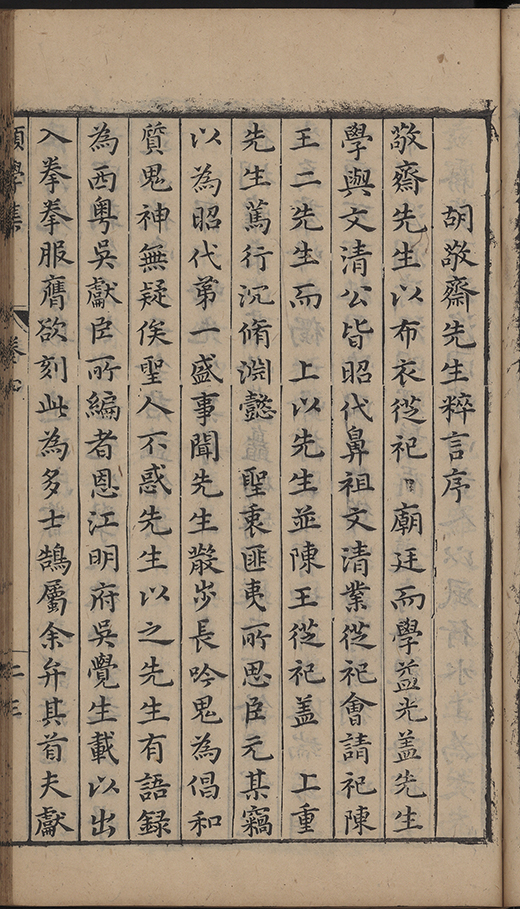 胡敬齋先生粹言序
敬齋先生以布衣從祀 廟廷而學益光蓋先生
學與文清公皆昭代鼻祖文清業從祀會請祀陳
王二先生而 上以先生並陳王從祀蓋 上重
先生篤行沉脩淵懿 聖衷匪夷所思臣元某竊
以為昭代第一盛事聞先生散步長吟鬼為倡和
質鬼神無疑俟聖人不惑先生以之先生有語錄
為西粵吳獻臣所編者恩江明府吳覺生載以出
入拳拳服膺欲刻此為多士鵠屬余弁其首夫獻
願學集
卷四
二三